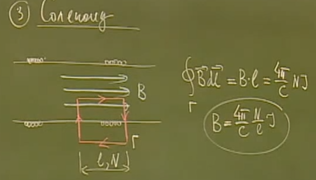 ③ Соленоид
B
Γ
l, N
∮B⃗dl⃗ = B·l = 4π/c NJ
Γ
B = 4π/c N/l J